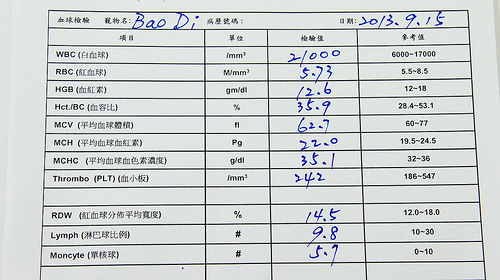 血球檢驗 寵物名: Bao Di 病歷號碼: 日期: 2013.9.15
項目 單位 檢驗值 參考值
WBC (白血球) /mm³ 21000 6000~17000
RBC (紅血球) M/mm³ 5.73 5.5~8.5
HGB (血紅素) gm/dl 12.6 12~18
Hct./BC (血容比) % 35.9 28.4~53.1
MCV (平均血球體積) fl 62.7 60~77
MCH (平均血球血紅素) Pg 22.0 19.5~24.5
MCHC (平均血球血色素濃度) g/dl 35.1 32~36
Thrombo (PLT) (血小板) /mm³ 242 186~547
RDW (紅血球分佈平均寬度) % 14.5 12.0~18.0
Lymph (淋巴球比例) # 9.8 10~30
Moncyte (單核球) # 5.7 0~10